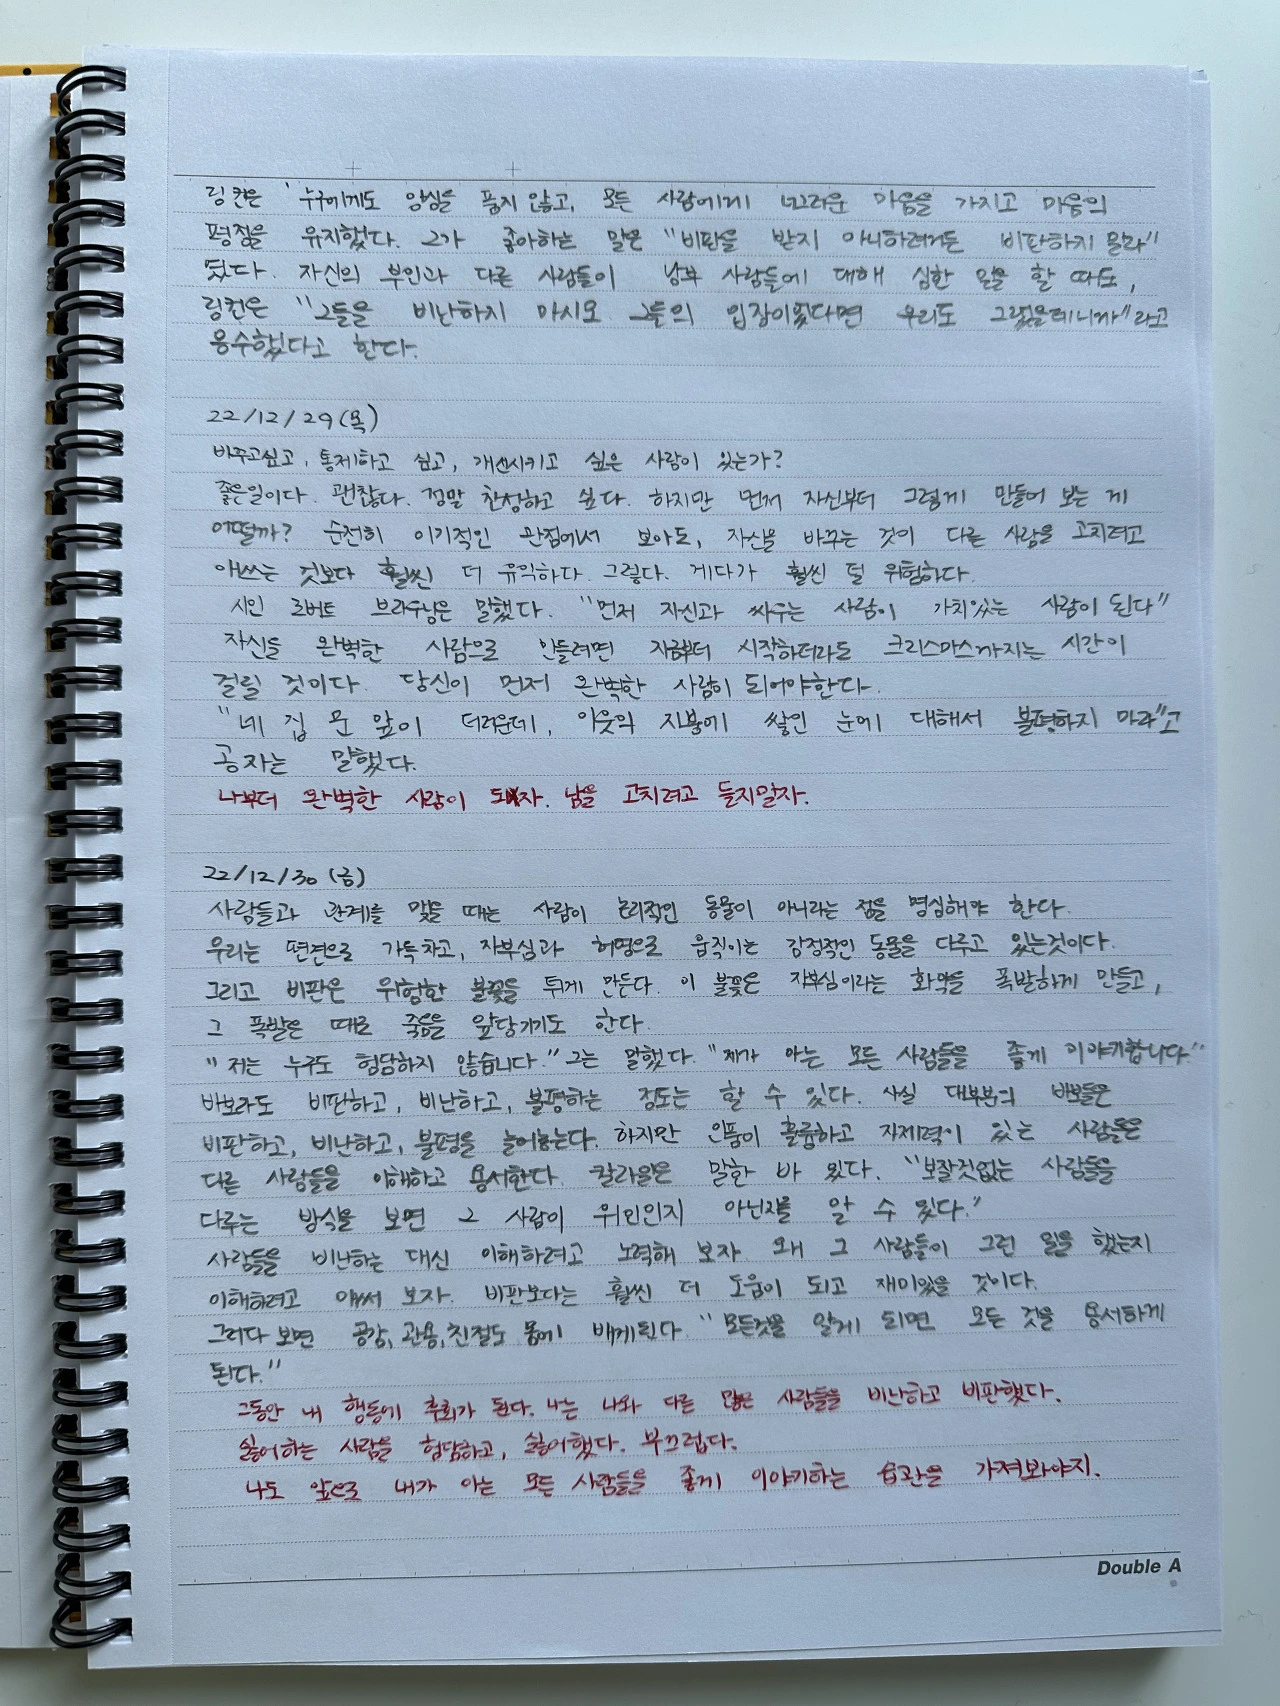 링컨은 '누구에게도 앙심을 품지 않고, 모든 사람에게 너그러운 마음을 가지고 마음의
평정을 유지했다. 그가 좋아하는 말은 "비판을 받지 아니하려거든 비판하지 말라"
였다. 자신의 부인과 다른 사람들이 남부 사람들에 대해 심한 말을 할 때도,
링컨은 "그들을 비난하지 마시오 그들의 입장이었다면 우리도 그랬을테니까"라고
응수했다고 한다.
22/12/29(목)
바꾸고싶고, 통제하고 싶고, 개선시키고 싶은 사람이 있는가?
좋은일이다. 괜찮다. 정말 찬성하고 싶다. 하지만 먼저 자신부터 그렇게 만들어 보는 게
어떨까? 순전히 이기적인 관점에서 보아도, 자신을 바꾸는 것이 다른 사람을 고치려고
애쓰는 것보다 훨씬 더 유익하다. 그렇다. 게다가 훨씬 덜 위험하다.
시인 로버트 브라우닝은 말했다. "먼저 자신과 싸우는 사람이 가치있는 사람이 된다"
자신을 완벽한 사람으로 만들려면 지금부터 시작하더라도 크리스마스까지는 시간이
걸릴 것이다. 당신이 먼저 완벽한 사람이 되어야한다.
"네 집 문 앞이 더러운데, 이웃의 지붕에 쌓인 눈에 대해서 불평하지 마라"고
공자는 말했다.
나부터 완벽한 사람이 되자. 남을 고치려고 들지말자.
22/12/30(금)
사람들과 관계를 맺을 때는 사람이 논리적인 동물이 아니라는 점을 명심해야 한다.
우리는 편견으로 가득차고, 자부심과 허영으로 움직이는 감정적인 동물을 다루고 있는것이다.
그리고 비판은 위험한 불꽃을 튀게 만든다. 이 불꽃은 자부심이라는 화약을 폭발하게 만들고,
그 폭발은 때로 죽음을 앞당기기도 한다.
"저는 누구도 험담하지 않습니다." 그는 말했다. "제가 아는 모든 사람들을 좋게 이야기합니다"
바보라도 비판하고, 비난하고, 불평하는 정도는 할 수 있다. 사실 대부분의 바보들은
비판하고, 비난하고, 불평을 늘어놓는다. 하지만 인품이 훌륭하고 자제력이 있는 사람들은
다른 사람들을 이해하고 용서한다. 칼라일은 말한 바 있다. "보잘것없는 사람들을
다루는 방식을 보면 그 사람이 위인인지 아닌지를 알 수 있다."
사람들을 비난하는 대신 이해하려고 노력해 보자. 왜 그 사람들이 그런 일을 했는지
이해하려고 애써 보자. 비판보다는 훨씬 더 도움이 되고 재미있을 것이다.
그러다 보면 공감, 관용, 친절도 몸에 배게된다. "모든것을 알게 되면 모든 것을 용서하게
된다."
그동안 내 행동에 후회가 된다. 나는 나와 다른 많은 사람들을 비난하고 비판했다.
싫어하는 사람을 험담하고, 싫어했다. 부끄럽다.
나도 앞으로 내가 아는 모든 사람들을 좋게 이야기하는 습관을 가져봐야지.
Double A